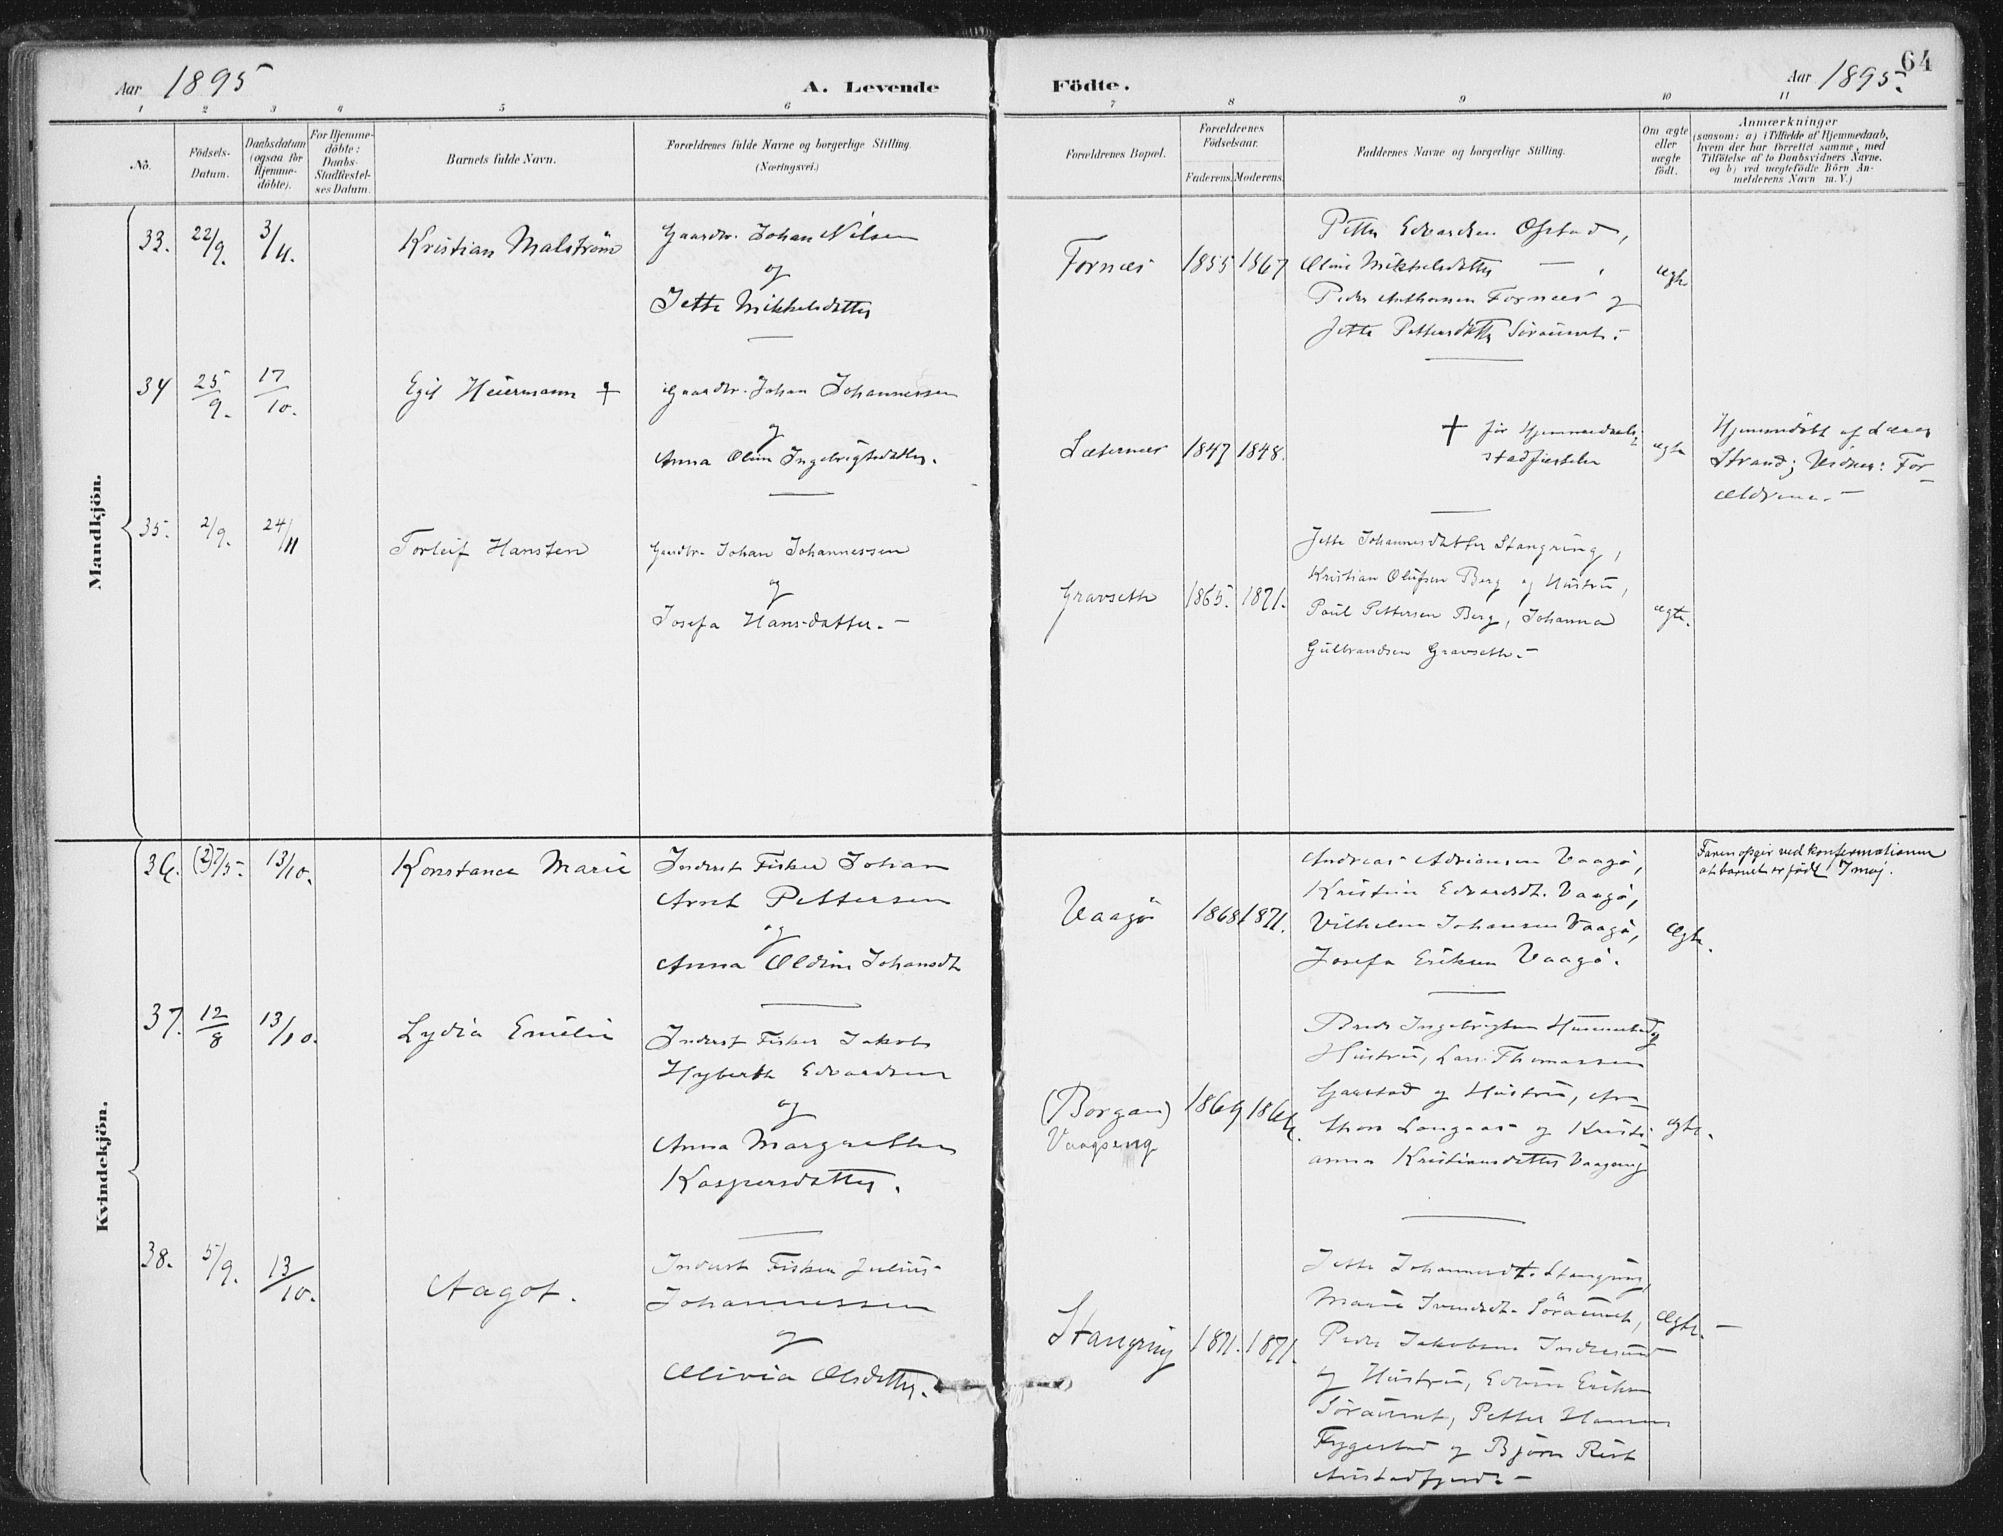 64
Aar 1895
A. Levende Födte.
Aar 1895.
1 2 3 6 5 6 7 8 9 10 11
No.
Födsels-Datum.
Daabsdatum (ogsaa for Hjemme-döbte).
For Hjemme-döbte: Daabs-Stadfæstel-ses Datum.
Barnets fulde Navn.
Forældrenes fulde Navne og borgerlige Stilling.
(Næringsvei.)
Forældrenes Bopæl.
Forældrenes Födselsaar.
Faderens. Moderens.
Faddernes Navne og borgerlige Stilling.
Om ægte eller uægte födt.
Anmærkninger
(saasom: a) i Tilfælde af Hjemmedaab,
hvem der har forrettet samme, med
Tilföielse af to Daabsvidners Navne.
og b) ved uægtefödte Börn An-
melderens Navn m. V.)
Mandkjön.
33. 22/9. 3/11. Kristian Malström
Gaardbr. Johan Nilsen
og
Jette Mikkelsdatter
Fornæs 1855 1867
Petter Edvardsen Ofstad,
Oline Mikkelsdatter — ,
Peder Anthonsen Fornæs og
Jette Pettersdatter Söraunet.
ægte
34 25/9. 17/10. Egil Heiermann +
Gaardbr. Johan Johannessen
og
Anna Oline Ingebrigtsdatter.
1847 1848.
+ før Hjemmedaabs
stadfæstelse
ægte
Hjemmedöbt af Lærer
Strand; Vidner: For-
ældrene. —
35. 2/9. 24/11 Torleif Hansten
Gaardbr. Johan Johannessen
og
Josefa Hansdatter. —
Gravseth 1865. 1871.
Jette Johannesdatter Stangring,
Kristian Olufsen Berg og Hustru,
Paul Pettersen Berg, Johanna
Gulbrandsen Gravseth. —
ægte.
Kvindekjön.
36. (2)7/5. 13/10. Konstance Marie
Inderst Fisker Johan
Arnt Pettersen
og
Anna Oldine Johansdt
Vaagö 1868 1871.
Andreas Adriansen Vaagö,
Kristine Edvardsdt. Vaagö,
Vilhelm Johansen Vaagö,
Josefa Eriksen Vaagö.
Ægte.
Faren opgir ved konfermationen
at barnet er født 7 maj.
37. 12/8 13/10. Lydia Emelie
Inderst Fisker Jakob
Hyberth Edvardsen
og
Anna Margrethe
Kaspersdatter.
(Borgan)
Vaagseng
1869 1866.
Ingebrigtsen
Hustru, Lars Thomassen
Garstad og Hustru, An-
thon Langaas og Kristi-
anna Kristiansdatter Vaageng
ægte.
38. 5/9. 13/10. Aagot.
Inderst Fisker Julius
Johannessen
og
Olivia Olsdatter.
Stangring 1871. 1871.
Jette Johannesdt. Stangring,
Marie Svendsdt. Söraunet,
Peder Jakobsen Indresund
og Hustru, Edvin Eriksen
Söraunet, Petter Hansen
Flygestad og Björn Rist
Anstadfjord. —
Ægte. —